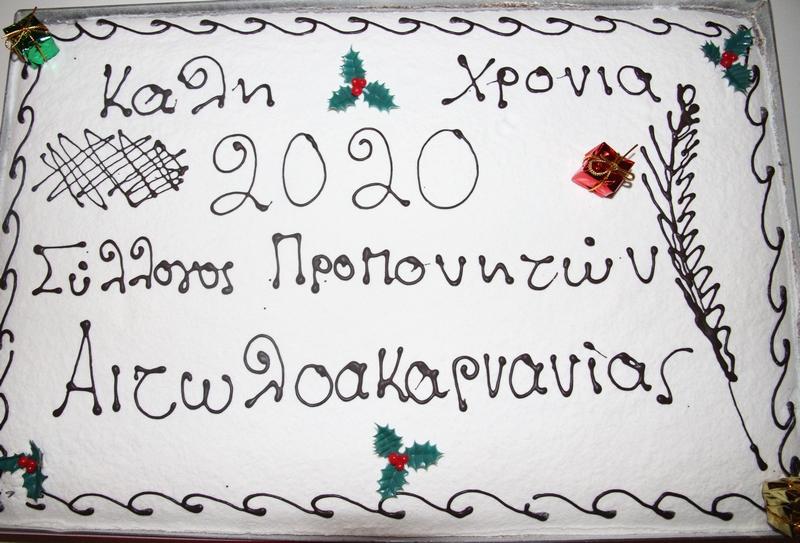 Καλη Χρονια
2020
Σύλλογος Προπονητών
Αιτωλοακαρνανίας